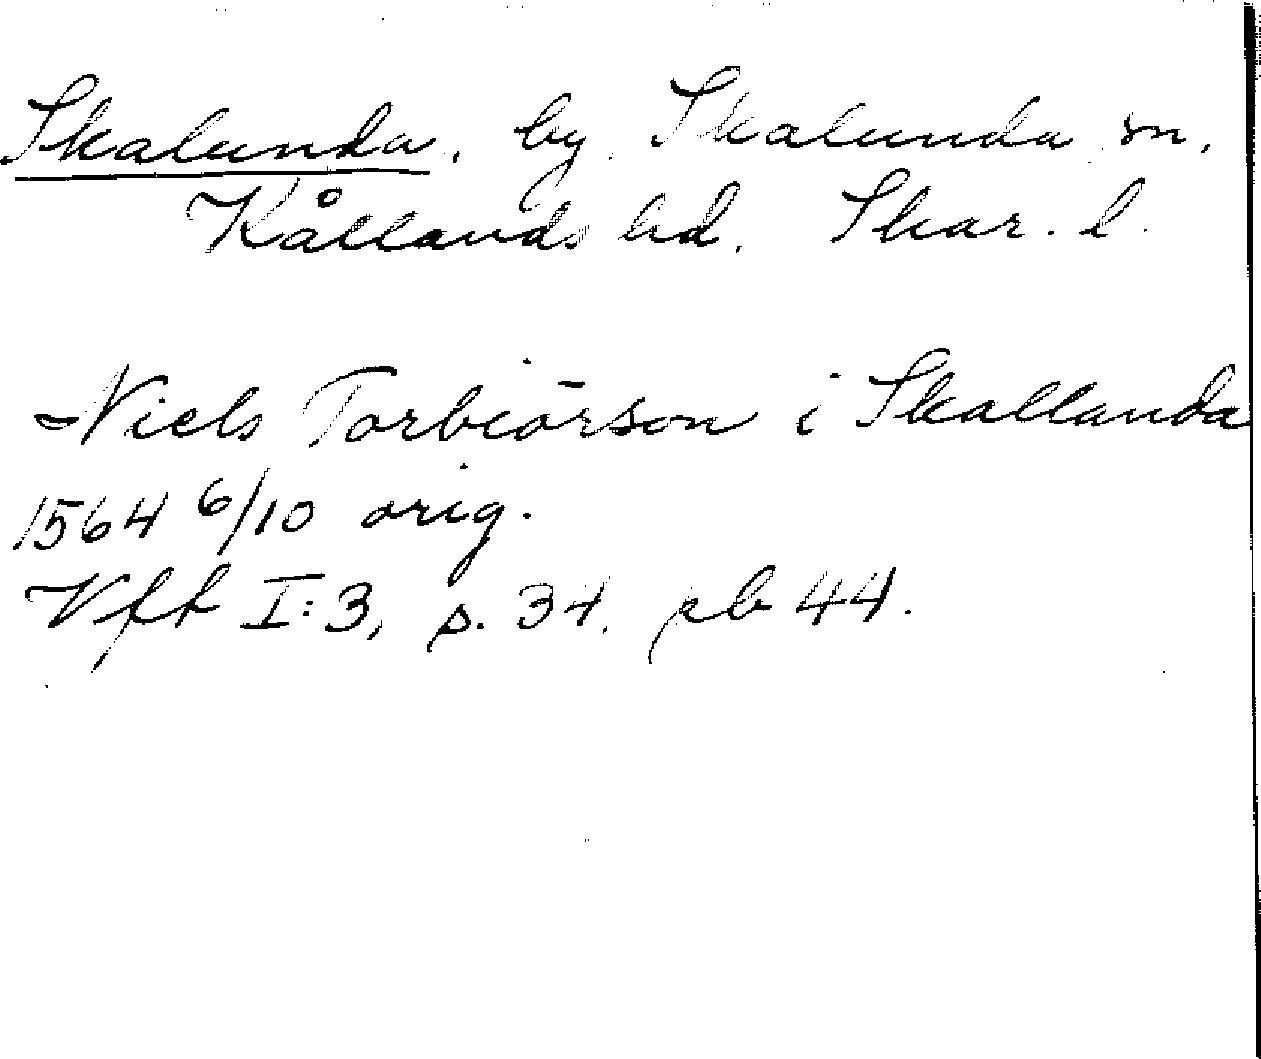 Skalunda, by, Skalunda sn,
Kållands hd, Skar. l.
Niels Torbiörson i Skallanda
1564 6/10 orig.
Vff I:3, p. 34, nb 44.